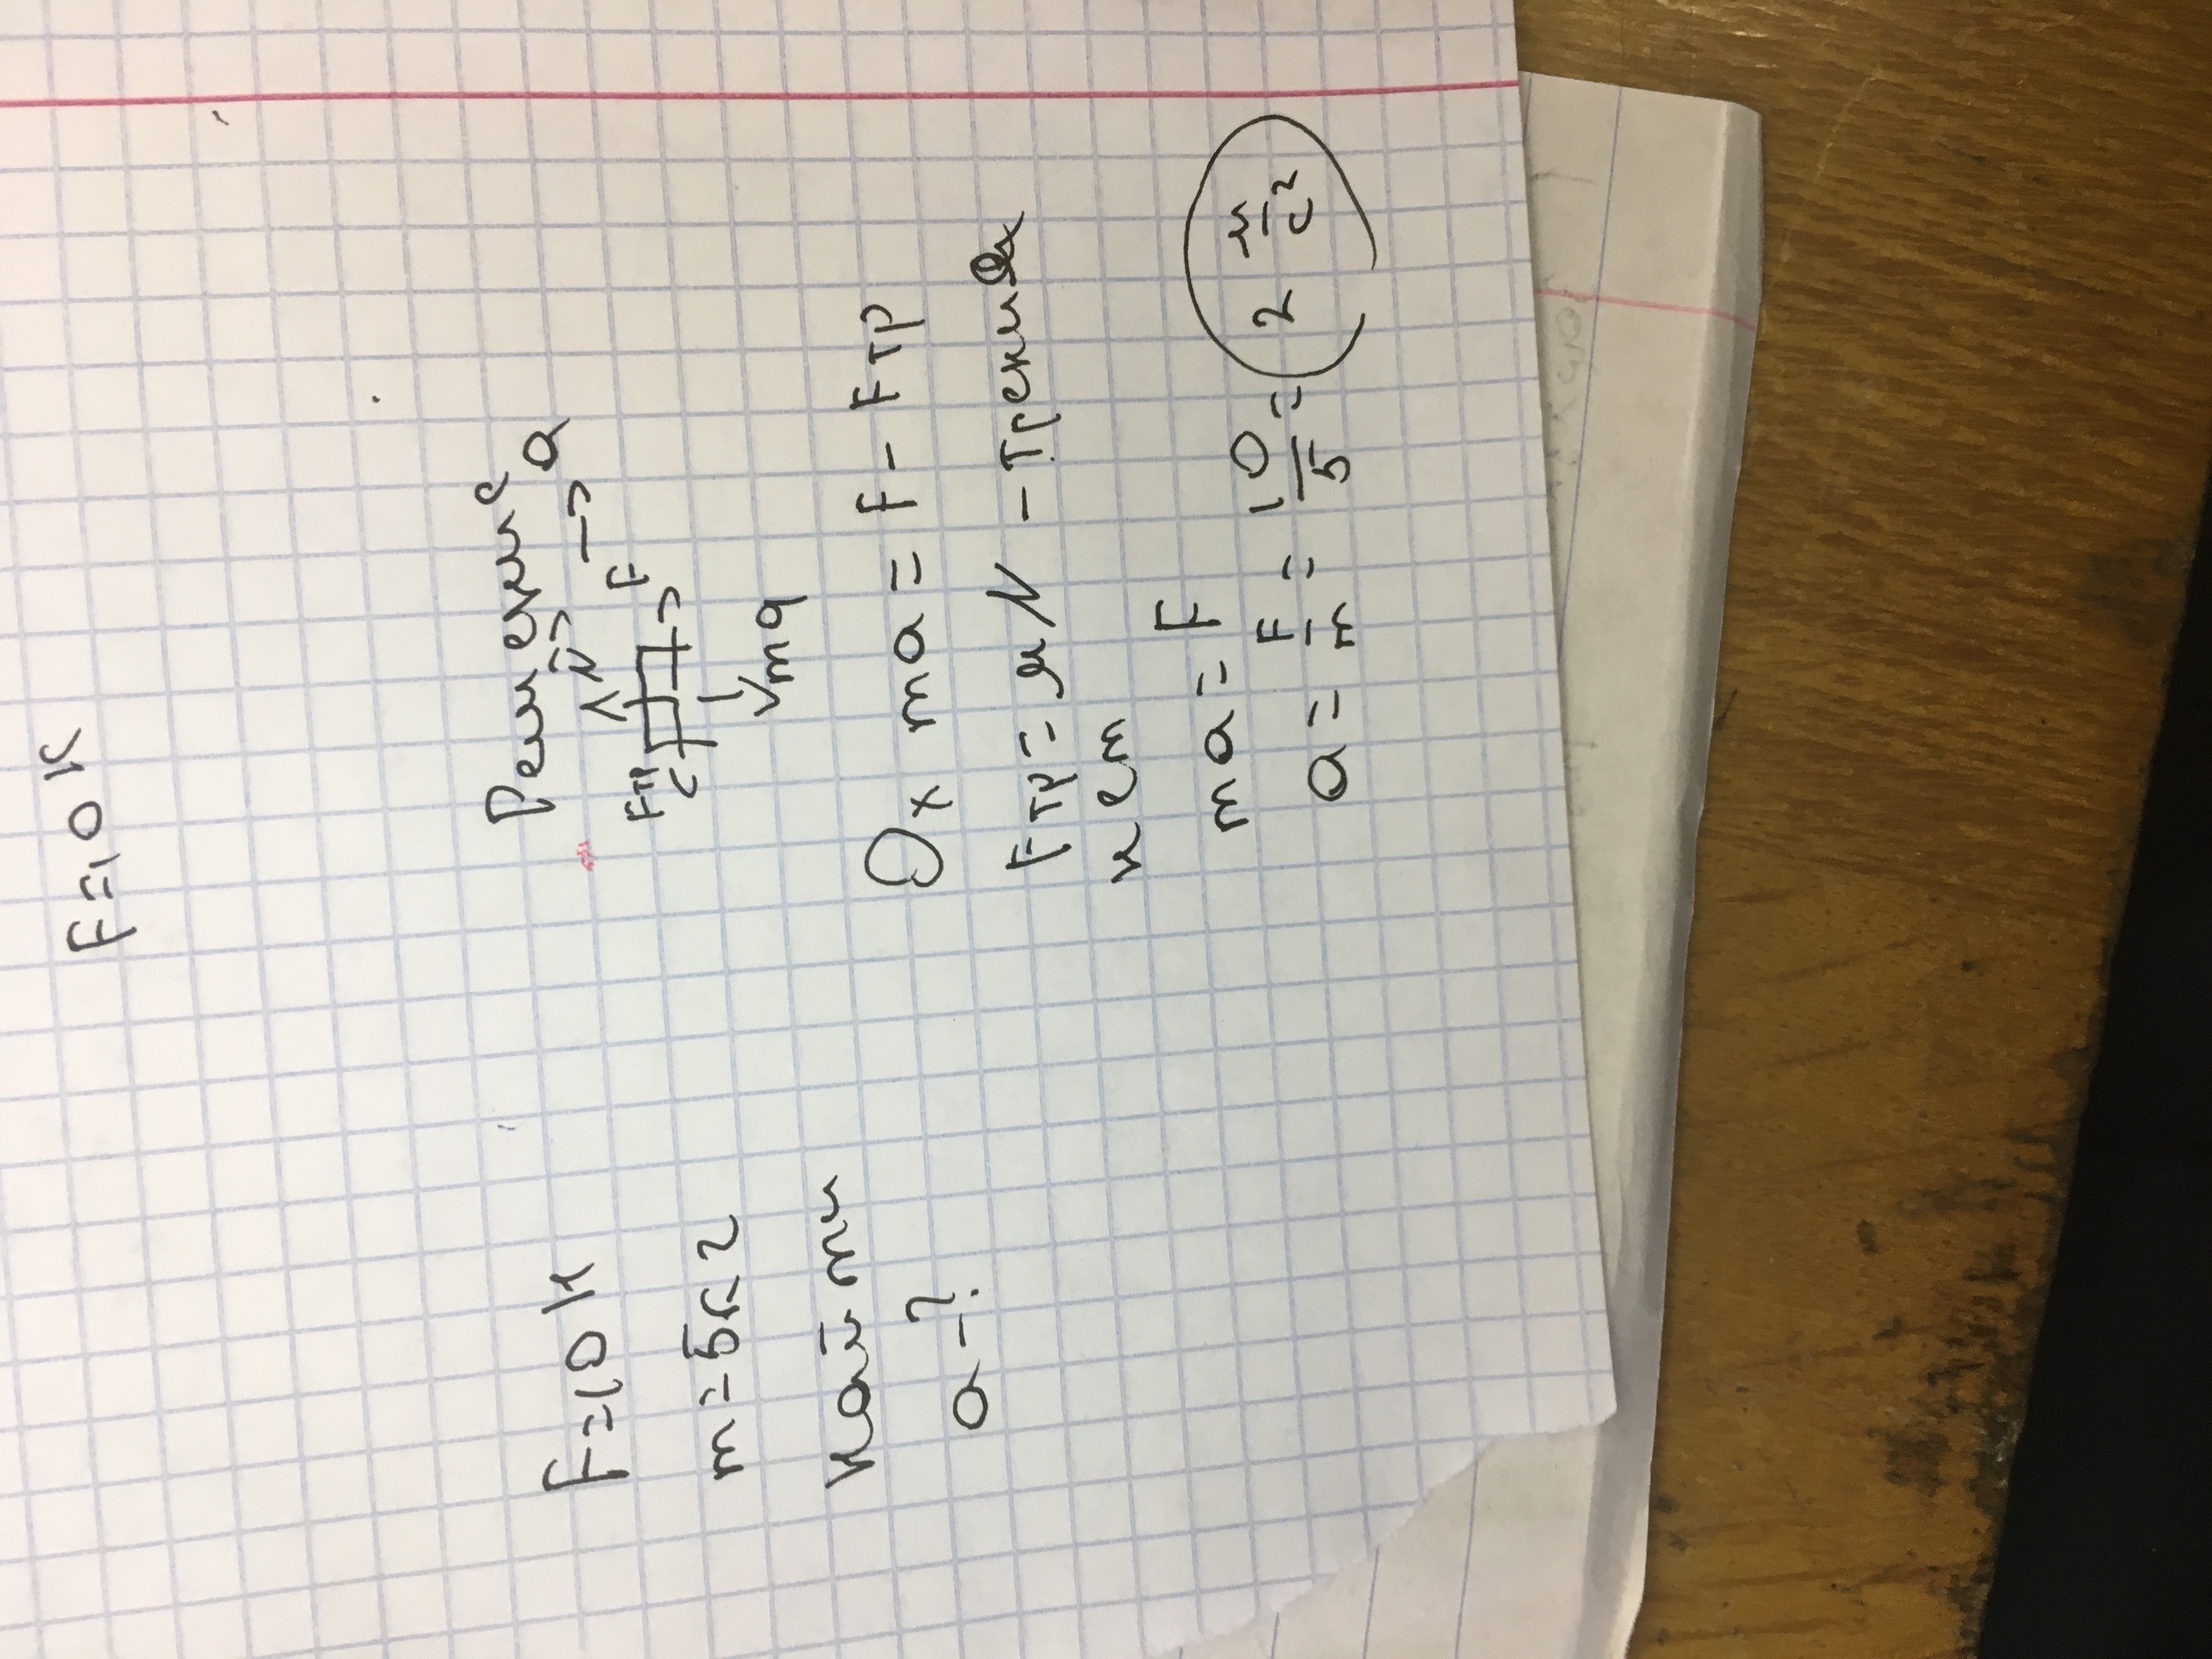 F=10 Н
F=10 Н
m=5кг
Найти
a-?
Решение
N a
Fтр F
mg
Ox ma = F - Fтр
Fтр=μN - трения
нет
ma = F
a = F/m = 10/5 = 2 м/с²